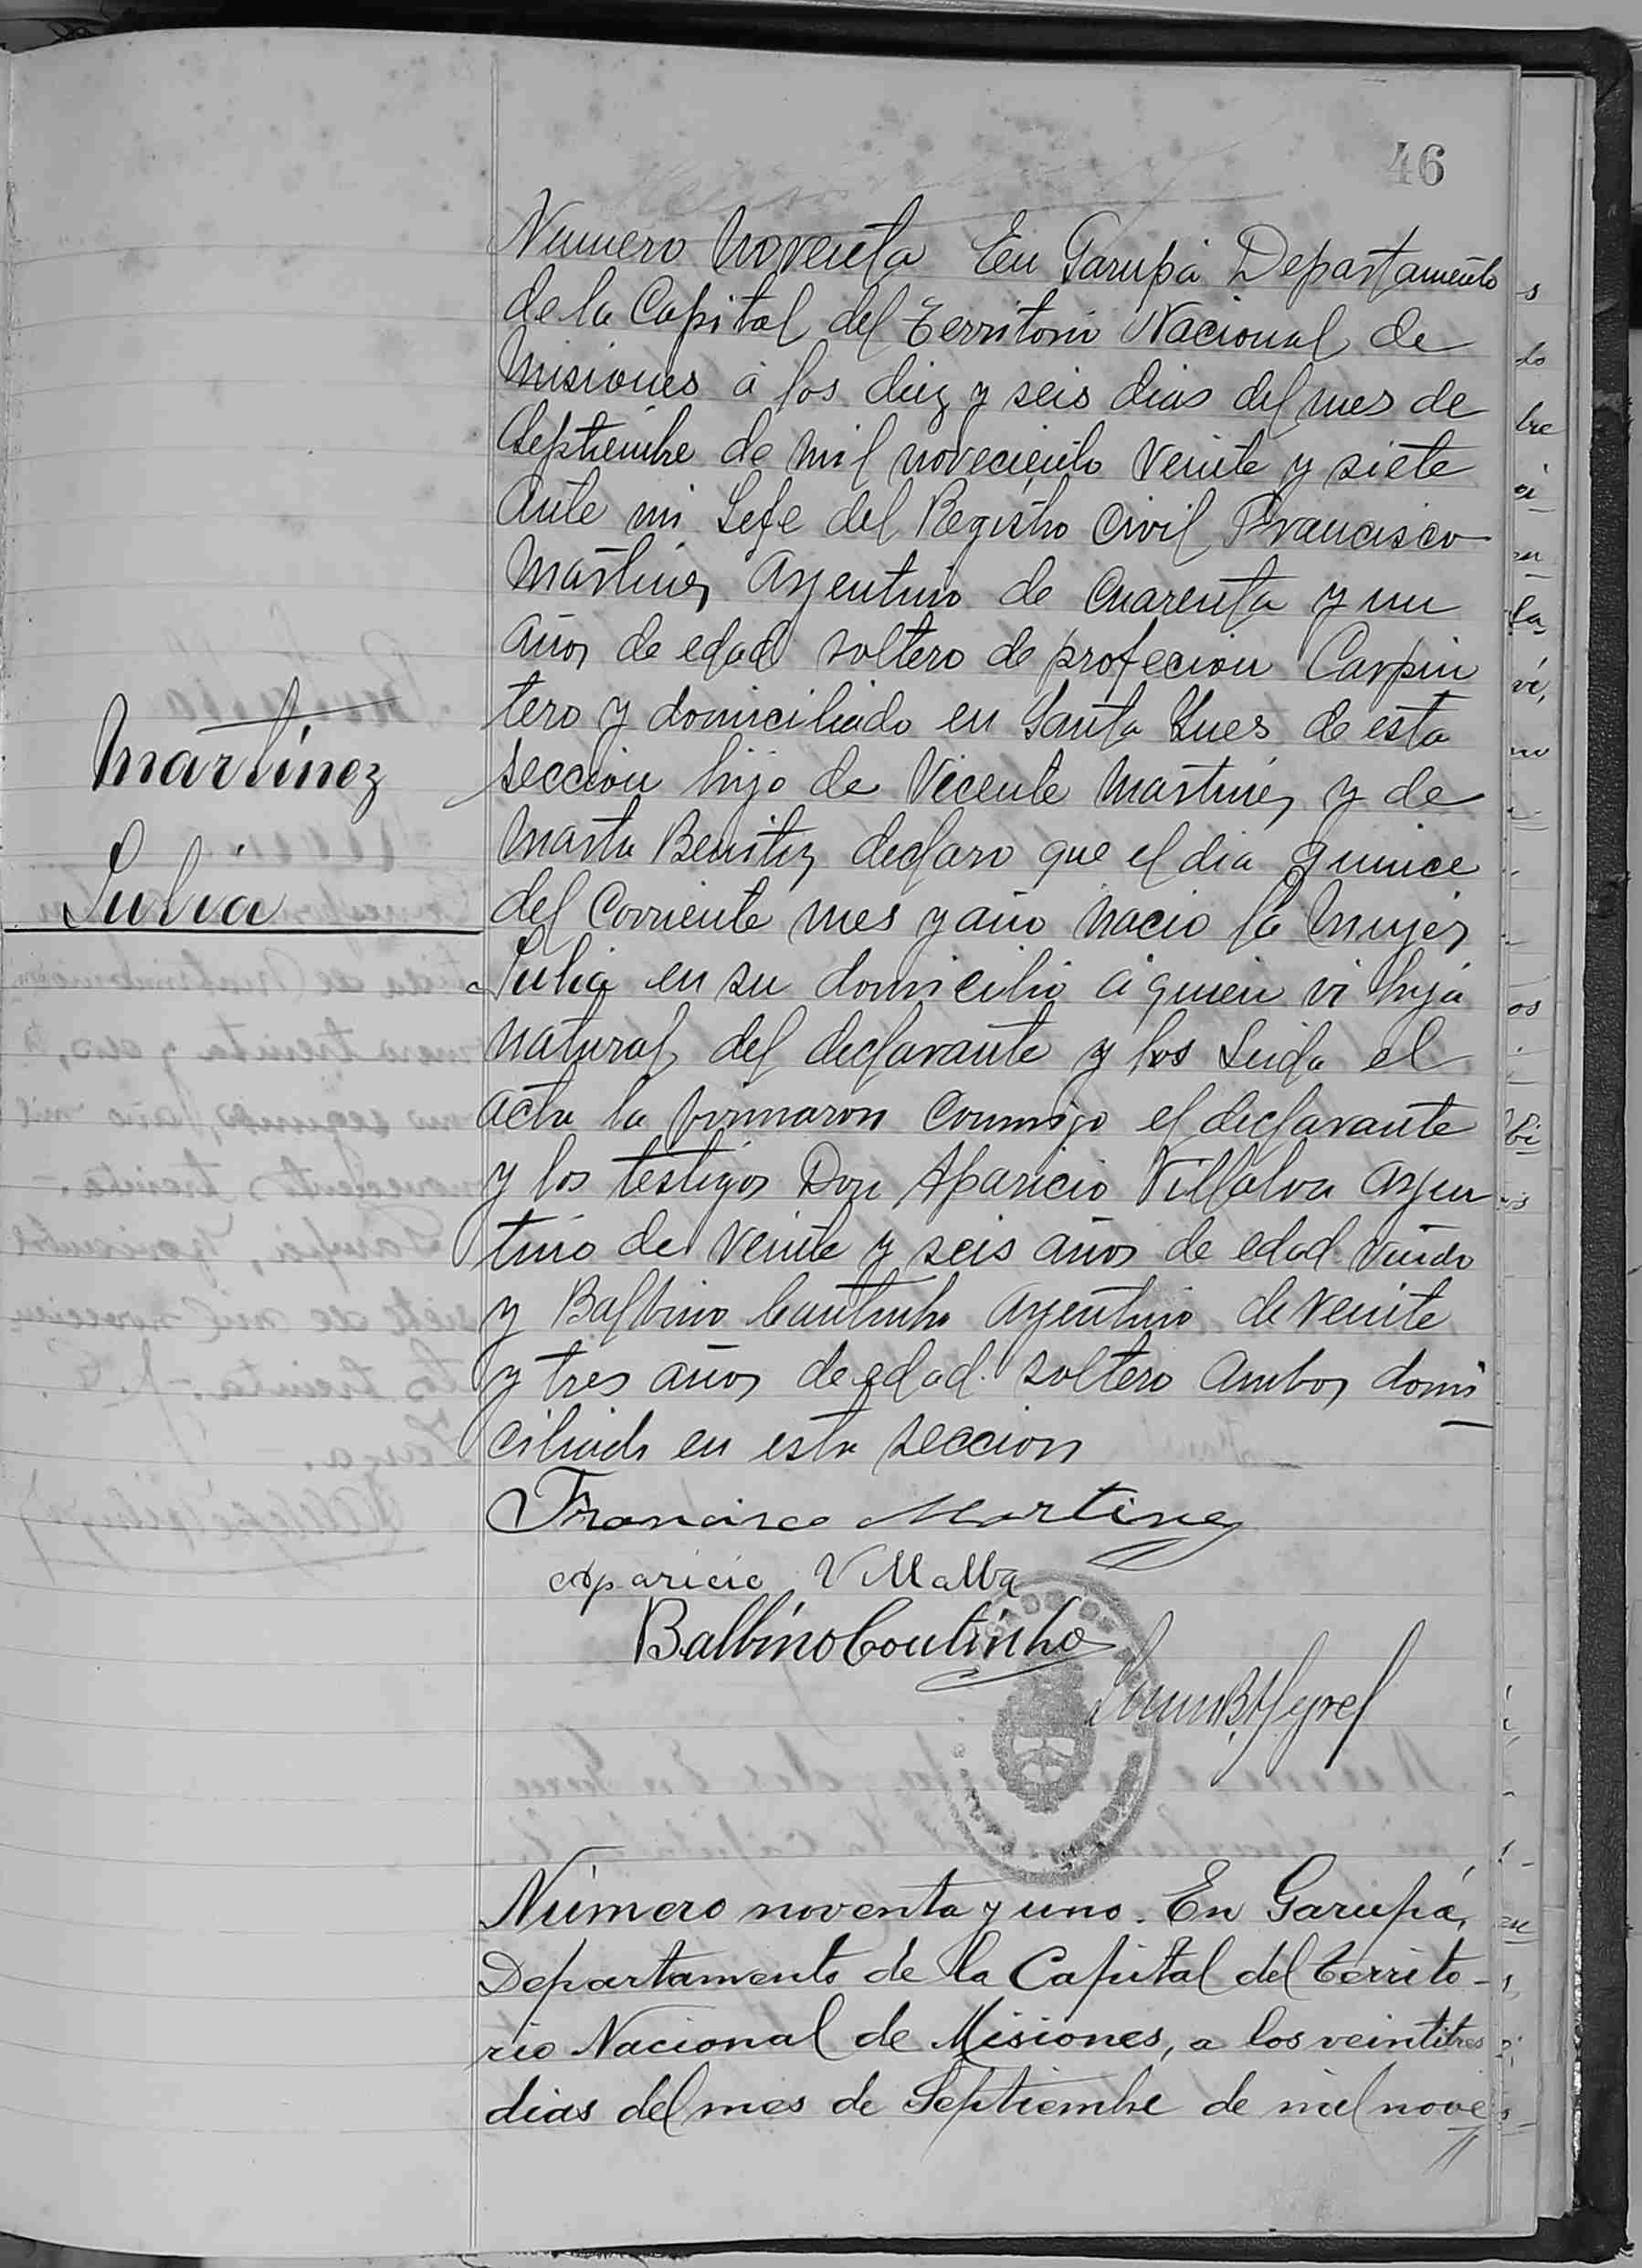 46
Numero Noventa En Garupá Departamento
de la Capital del Territorio Nacional de
Misiones á los diez y seis dias del mes de
Septiembre de mil noveciento Veinte y siete
ante mi Jefe del Registro Civil Francisco
Martinez Argentino de Cuarenta y un
años de edad soltero de profecion Carpin
tero y domiciliado en Santa Ines de esta
Martínez
sección hijo de Vicente Martinez y de
Marta Benitez declaro que el dia quince
Julia
del Corriente mes y año nacio la Mujer
Julia en su domicilio á quien vi hija
natural del declarante y los Leida el
acta la firmaron Conmigo el declarante
y los testigos Don Aparicio Villalva Argen
tino de Veinte y seis años de edad Viudo
y Balbino Cautinho Argentino de Veinte
y tres años de edad soltero Ambos domi
ciliado en esta seccion
Francisco Martinez
Aparicio Villalba
Balbino Coutinho
Número noventa y uno. En Garupá,
Departamento de la Capital del Territo-
rio Nacional de Misiones, a los veintitres
dias del mes de Septiembre de mil nove